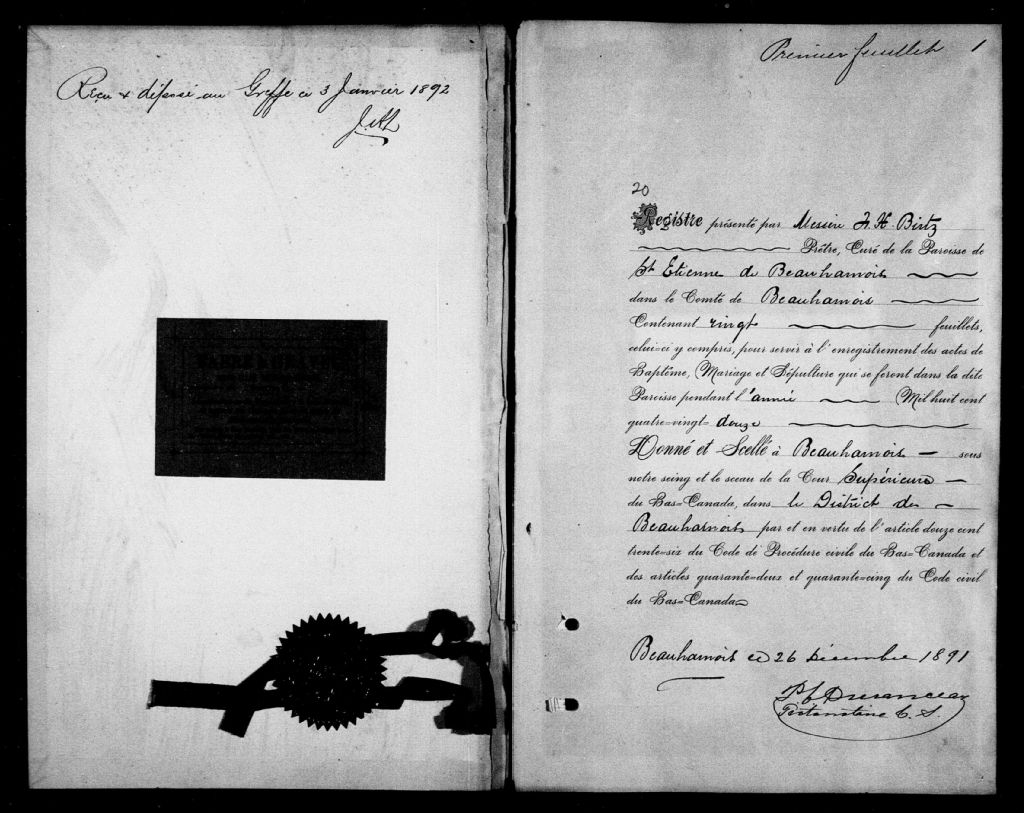 Reçu & déposé au Greffe ce 3 Janvier 1892
Premier feuillet 1
20
Registre présenté par Messire F. H. Birtz
Prêtre, Curé de la Paroisse de
St Etienne de Beauharnois
dans le Comté de Beauharnois
Contenant vingt feuillets,
celui=ci y compris, pour servir à l'enregistrement des actes de
Baptême, Mariage et Sépulture qui se feront dans la dite
Paroisse pendant l'année Mil huit cent
quatre=vingt= douze
Donné et Scellé à Beauharnois sous
notre seing et le sceau de la Cour Supérieure
du Bas=Canada, dans le District de
Beauharnois par et en vertu de l'article douze cent
trente=six du Code de Procédure civile du Bas=Canada et
des articles quarante=deux et quarante=cinq du Code civil
du Bas=Canada
Beauharnois ce 26 Décembre 1891
Protonotaire C. S.